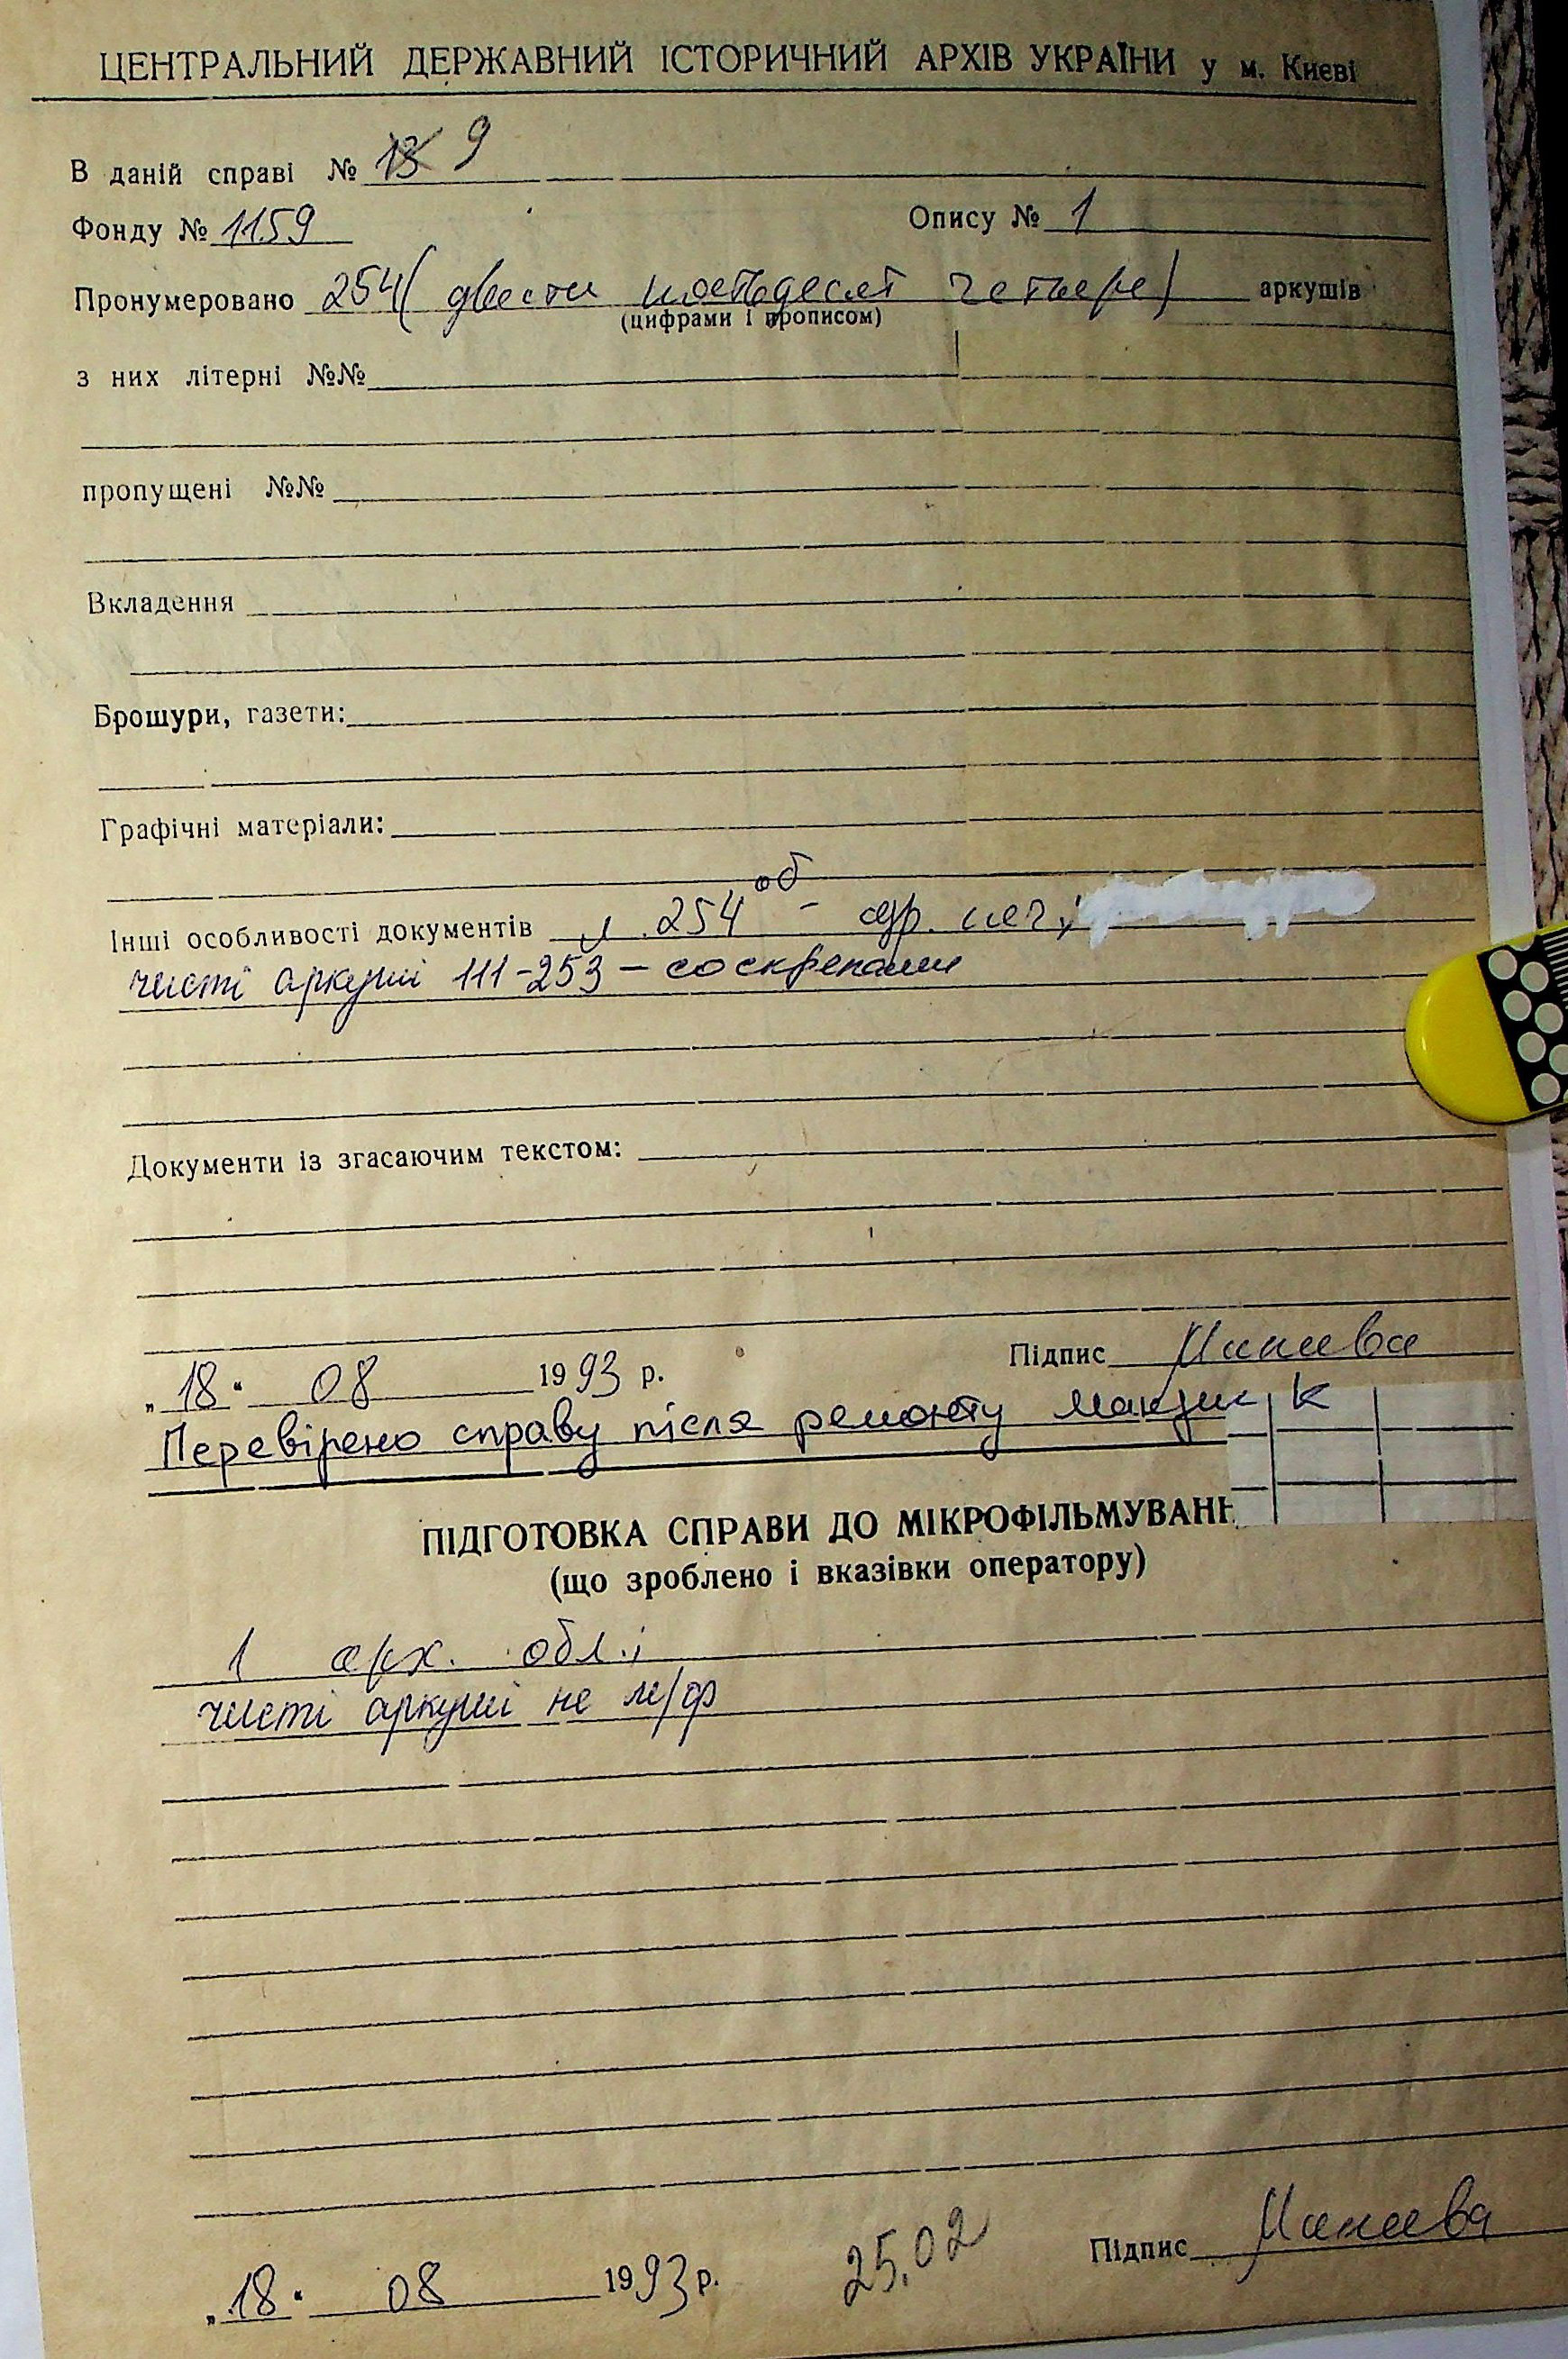 ЦЕНТРАЛЬНИЙ ДЕРЖАВНИЙ ІСТОРИЧНИЙ АРХІВ УКРАЇНИ у м. Києві
В даній справі № 13 9
Фонду № 1159 Опису № 1
Пронумеровано 254 (двести пятьдесят четыре) аркушів
(цифрами і прописом)
з них літерні №№
пропущені №№
Вкладення
Брошури, газети:
Графічні матеріали:
Інші особливості документів л. 254об -
чисті аркуші 111-253 – со скрепами
Документи із згасаючим текстом:
„18“ 08 1993 р. Підпис
Перевірено справу після ремонту К
ПІДГОТОВКА СПРАВИ ДО МІКРОФІЛЬМУВАНН
(що зроблено і вказівки оператору)
1 арх. обл.;
чисті аркуші не м/ф
„18“ 08 1993 р. 25.02 Підпис